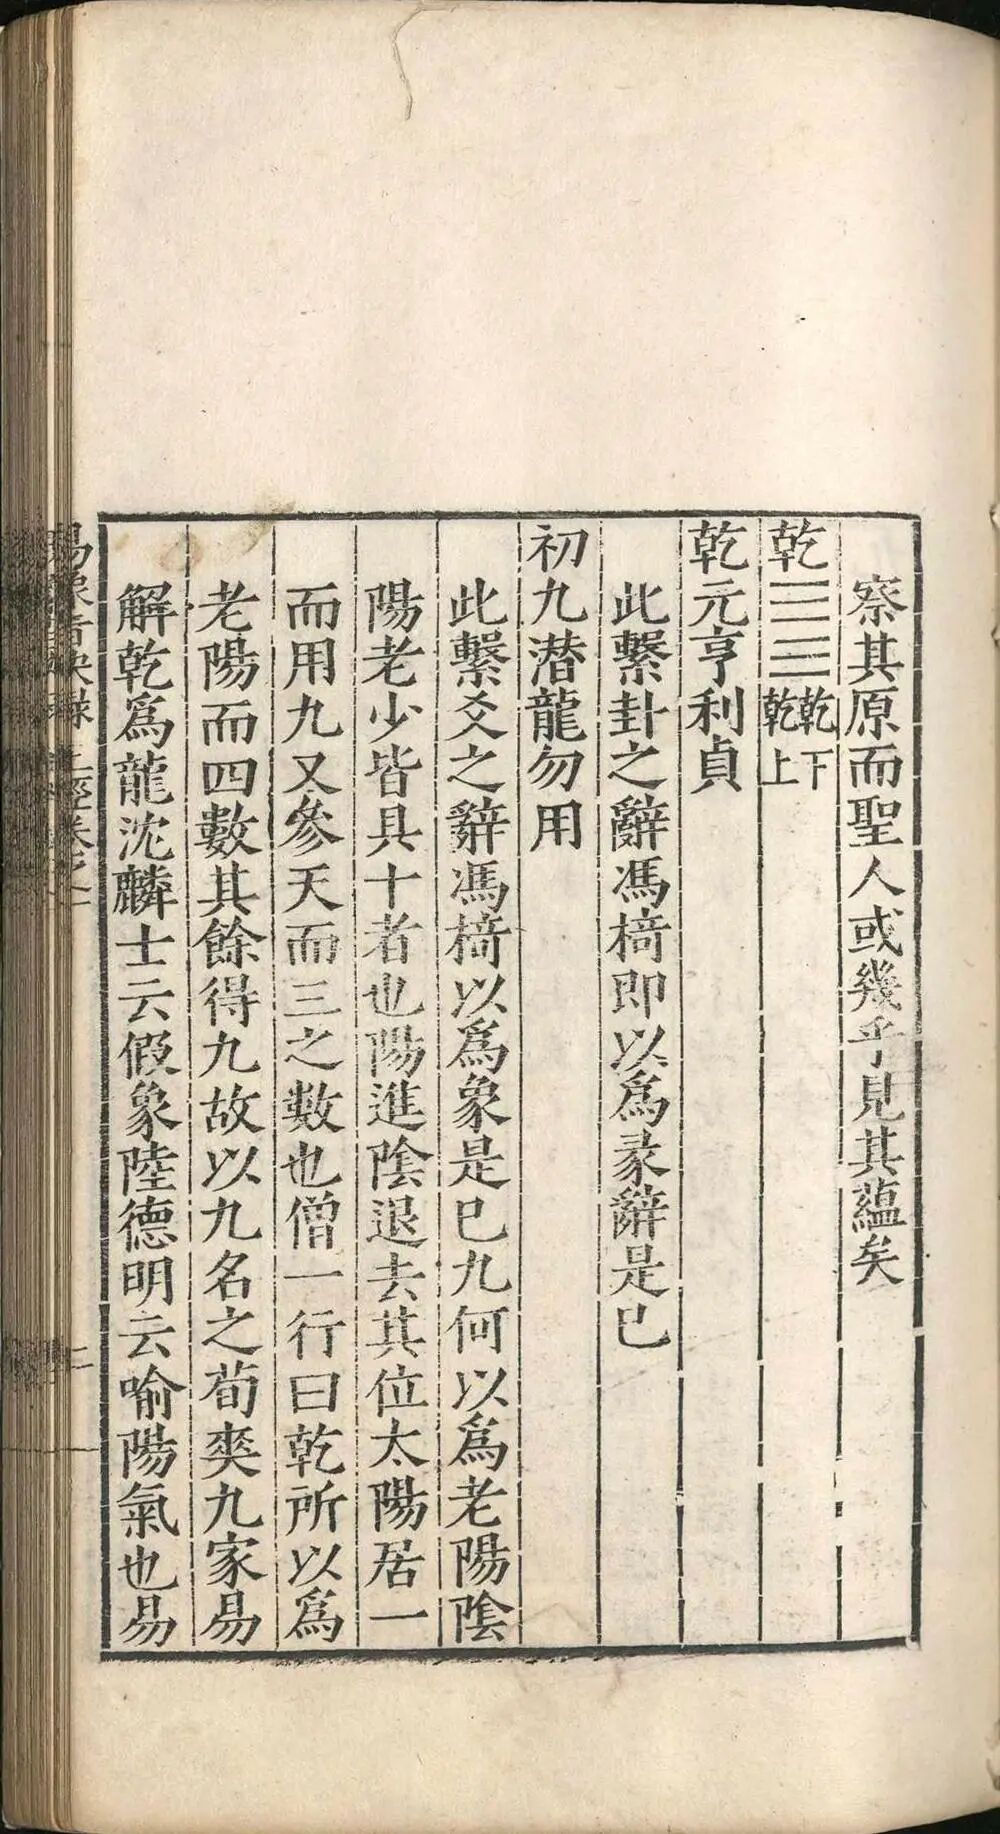 察其原而聖人或幾乎見其蘊矣
乾☰☰乾下乾上
乾元亨利貞
此繫卦之辭馮椅即以爲彖辭是已
初九潛龍勿用
此繫爻之辭馮椅以爲象是已九何以爲老陽陰
陽老少皆具十者也陽進陰退去其位太陽居一
而用九又參天而三之數也僧一行曰乾所以爲
老陽而四數其餘得九故以九名之荀爽九家易
解乾爲龍沈麟士云假象陸德明云喻陽氣也易
上經卷之一
二